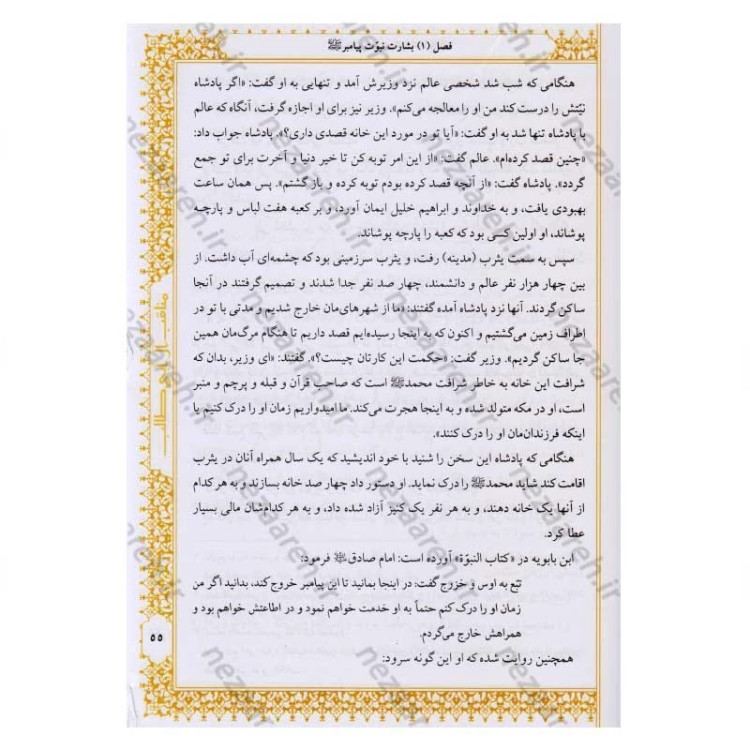 فصل (۱) بشارت نبوّت پیامبر ﷺ
هنگامی که شب شد شخصی عالم نزد وزیرش آمد و تنهایی به او گفت: «اگر پادشاه
نیّتش را درست کند من او را معالجه می‌کنم». وزیر نیز برای او اجازه گرفت، آنگاه که عالم
با پادشاه تنها شد به او گفت: «آیا تو در مورد این خانه قصدی داری؟». پادشاه جواب داد:
«چنین قصد کرده‌ام». عالم گفت: «از این امر توبه کن تا خیر دنیا و آخرت برای تو جمع
گردد». پادشاه گفت: «از آنچه قصد کرده بودم توبه کرده و باز گشتم». پس همان ساعت
بهبودی یافت، و به خداوند و ابراهیم خلیل ایمان آورد، و بر کعبه هفت لباس و پارچه
پوشاند، او اولین کسی بود که کعبه را پارچه پوشاند.
سپس به سمت یثرب (مدینه) رفت، و یثرب سرزمینی بود که چشمه‌ای آب داشت. از
بین چهار هزار نفر عالم و دانشمند، چهار صد نفر جدا شدند و تصمیم گرفتند در آنجا
ساکن گردند. آنها نزد پادشاه آمده گفتند: «ما از شهرهای‌مان خارج شدیم و مدتی با تو در
اطراف زمین می‌گشتیم و اکنون که به اینجا رسیده‌ایم قصد داریم تا هنگام مرگ‌مان همین
جا ساکن گردیم». وزیر گفت: «حکمت این کارتان چیست؟». گفتند: «ای وزیر، بدان که
شرافت این خانه به خاطر شرافت محمد ﷺ است که صاحب قرآن و قبله و پرچم و منبر
است، او در مکه متولد شده و به اینجا هجرت می‌کند. ما امیدواریم زمان او را درک کنیم یا
اینکه فرزندان‌مان او را درک کنند».
هنگامی که پادشاه این سخن را شنید با خود اندیشید که یک سال همراه آنان در یثرب
اقامت کند شاید محمد ﷺ را درک نماید. او دستور داد چهار صد خانه بسازند و به هر کدام
از آنها یک خانه دهند، و به هر نفر یک کنیز آزاد شده داد، و به هر کدام‌شان مالی بسیار
عطا کرد.
ابن بابویه در «کتاب النبوّة» آورده است: امام صادق ﷺ فرمود:
تبّع به اوس و خزرج گفت: در اینجا بمانید تا این پیامبر خروج کند، بدانید اگر من
زمان او را درک کنم حتماً به او خدمت خواهم نمود و در اطاعتش خواهم بود و
همراهش خارج می‌گردم.
همچنین روایت شده که او این گونه سرود:
مناقب آل ابی طالب
۵۵
nezaareh.ir